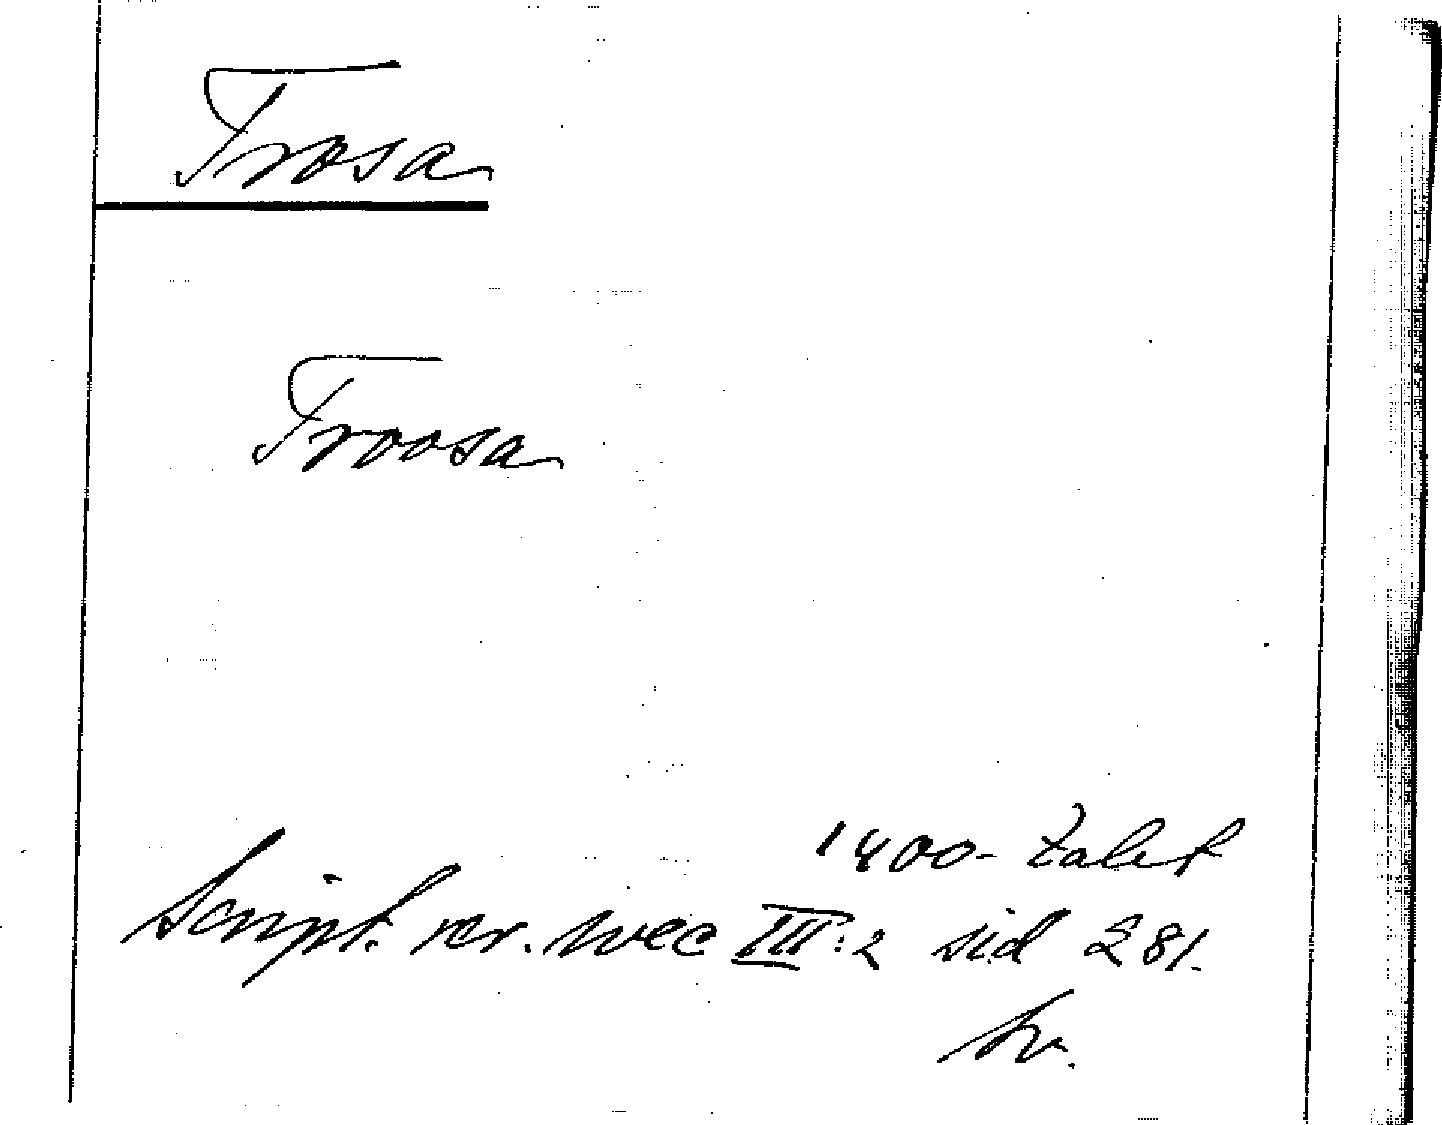 Trosa
Troosa
1400-talet
Script. rer. svec III:2 sid 281.
sv.